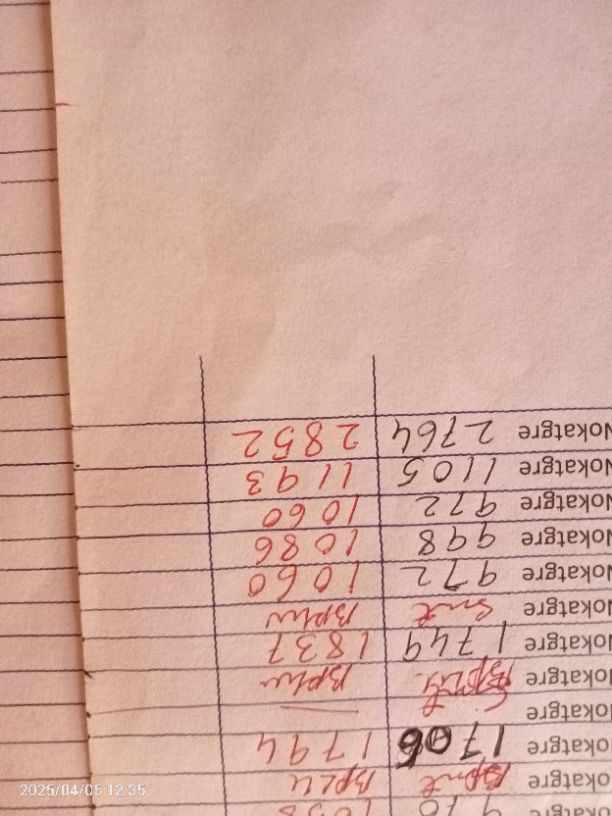 Nokatgre 970 1058
Nokatgre
Nokatgre 1706 1794
Nokatgre
Nokatgre
Nokatgre 1749 1837
Nokatgre
Nokatgre 972 1060
Nokatgre 998 1086
Nokatgre 972 1060
Nokatgre 1105 1193
Nokatgre 2764 2852
2025/04/05 12:35